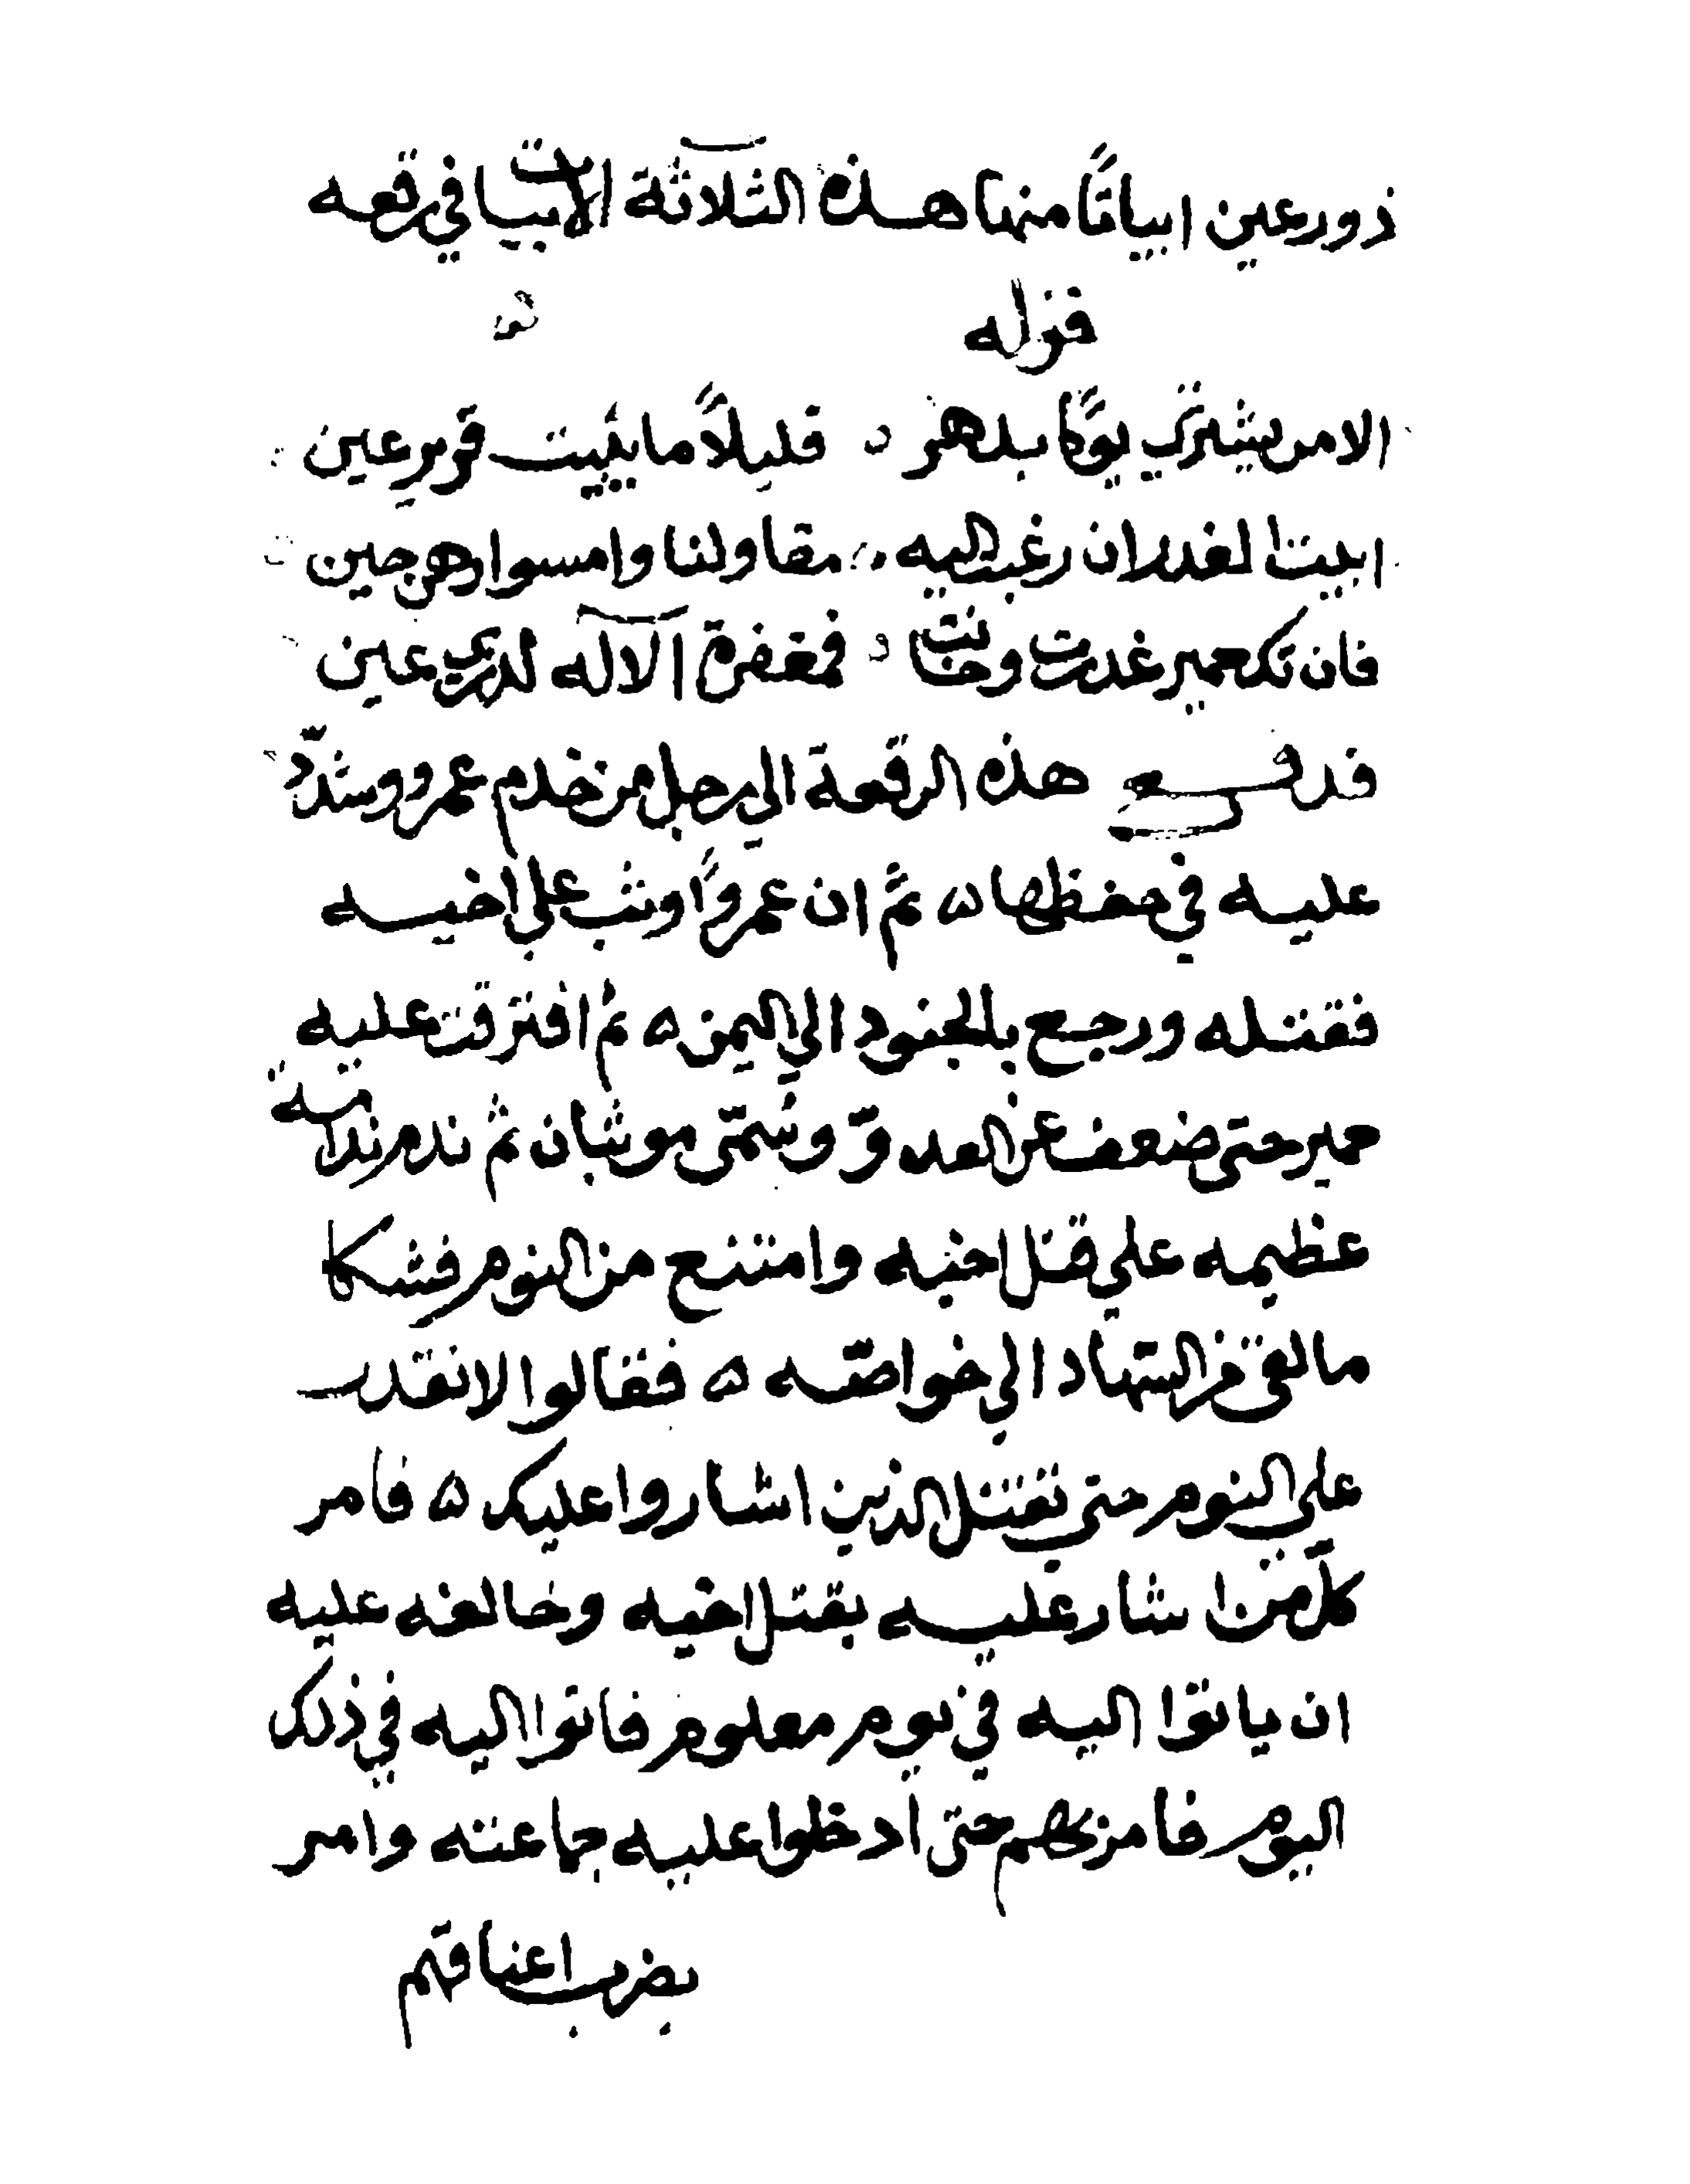 ذو رعين ابياتًا منها هذه الثلاثة الابيات في رقعه
قوله
الا من يشتري نومًا بسهر قليلاً ما يبيت قرير عين
ابيت الغدر ان رغبت اليه مقاولنا وامسوا رهو حين
فان تك حمير غدرت وخانت فمغفرة الآله لذي رعين
فدفع هذه الرقعة الي رجل من خدم عمرو وشدّد
عليه في حفظها ثمّ ان عمروًا وثب علي اخيه
فقتله ورجع بالجنود الي اليمن ثم افترقت عليه
حمير حتى ضعف عن العدوّ وسُمّي موثبان ثم ندم ندامةً
عظيمه علي قتل اخيه وامتنع من النوم فشكا
ما لقي من السّهاد الي خواصّه فقالوا لا نقدر
علي النوم حتى تقتل الذين اشاروا عليك فامر
كلّ من اشار عليه بقتل اخيه وخالفه عليه
ان ياتوا اليه في يوم معلوم فاتوا اليه في ذلك
اليوم فامر بهم حتى ادخلوا عليه جماعته وامر
بضرب اعناقهم